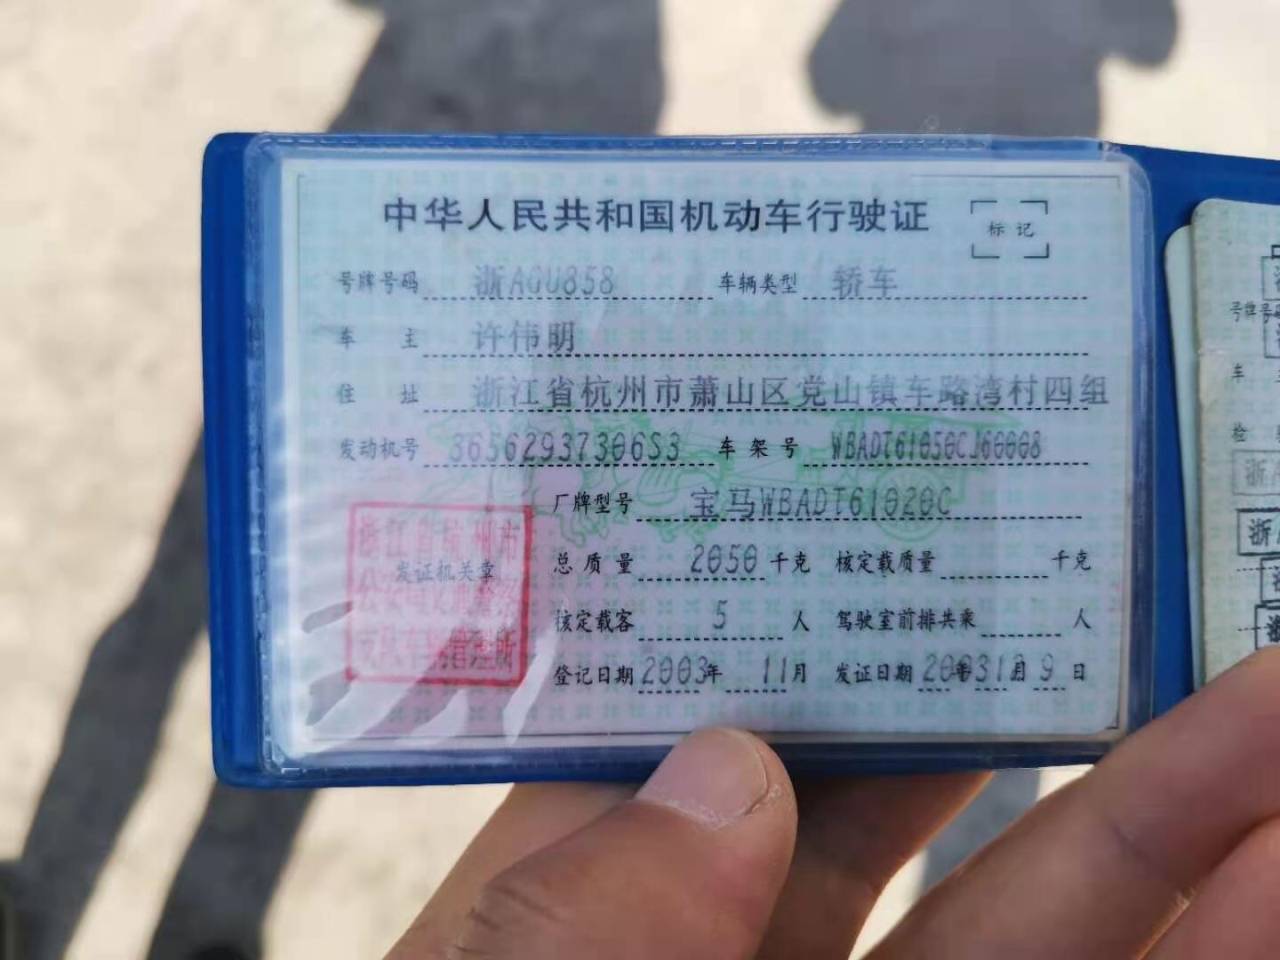 中华人民共和国机动车行驶证
标记
号牌号码 浙AGU858 车辆类型 轿车
车主 许伟明
住址 浙江省杭州市萧山区党山镇车路湾村四组
发动机号 36562937306S3 车架号 WBADT61050CJ60008
厂牌型号 宝马WBADT61020C
总质量 2050 千克 核定载质量 千克
核定载客 5 人 驾驶室前排共乘 人
登记日期 2003年 11月 发证日期
9 日
浙江省杭州市
发证机关章
公安局交通警察
支队车辆管理所
号牌号码
车
检